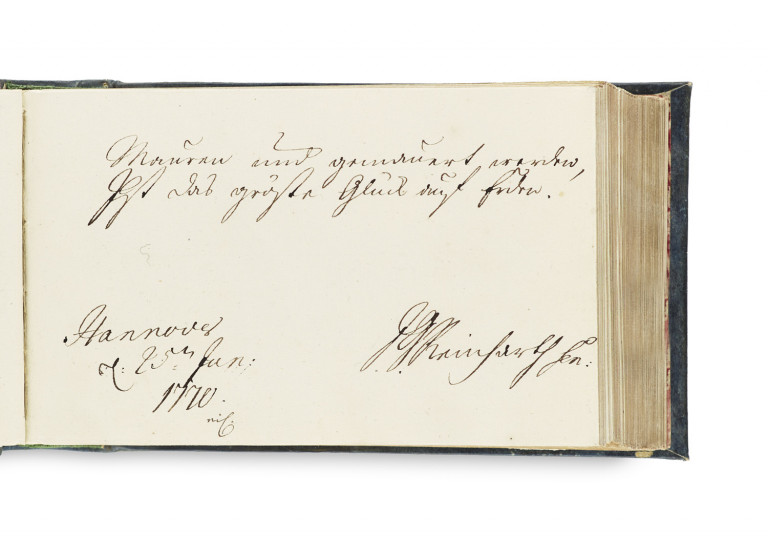 Mauren und gemauert werden,
Ist das gröste Glück auf Erden.
Hannover
d: 25ten Jan:
1770.
Reinharth sen: